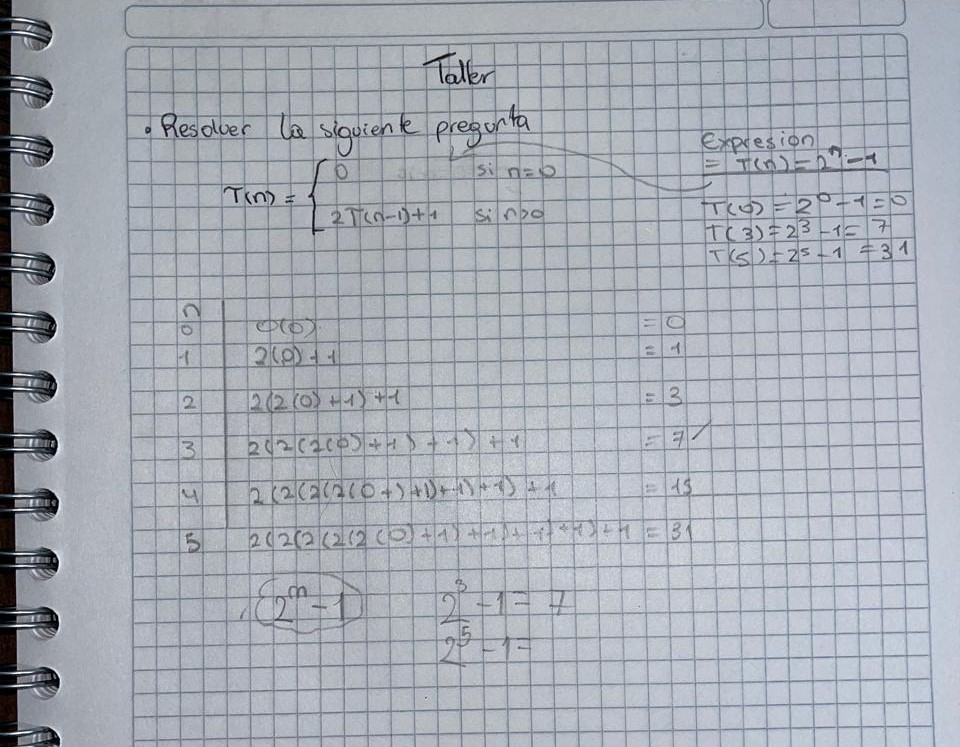 Taller
• Resolver la siguiente pregunta
T(n) = { 0 si n=0
2T(n-1)+1 si n>0
Expresion
= T(n) = 2^n - 1
T(0) = 2^0 - 1 = 0
T(3) = 2^3 - 1 = 7
T(5) = 2^5 - 1 = 31
n
0 0(0) = 0
1 2(0)+1 = 1
2 2(2(0)+1)+1 = 3
3 2(2(2(0)+1)+1)+1 = 7
4 2(2(2(2(0+)+1)+1)+1)+1 = 15
5 2(2(2(2(2(0)+1)+1)+1)+1)+1 = 31
2^n - 1 2^3 - 1 = 7
2^5 - 1 =